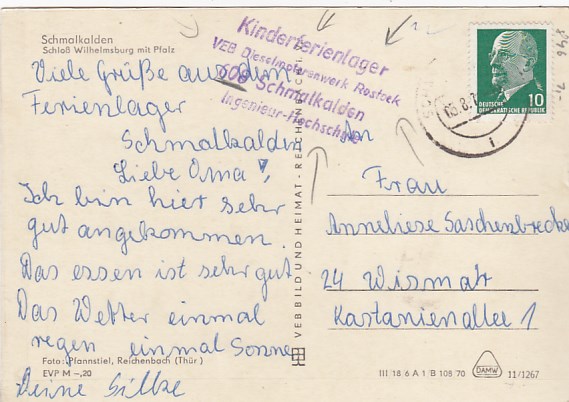 Schmalkalden
Schloß Wilhelmsburg mit Pfalz
Kinderferienlager
VEB Dieselmotorenwerk Rostock
608 Schmalkalden
Ingenieur-Hochschule
DEUTSCHE
DEMOKRATISCHE REPUBLIK
10
Viele Grüße aus dem
Ferienlager
Schmalkalden
Liebe Oma!
Ich bin hier sehr
gut angekommen.
Das essen ist sehr gut
Das Wetter einmal
regen einmal Sonne
Deine Silke
Foto: Plannstiel, Reichenbach (Thür.)
EVP M -,20
VEB BILD UND HEIMAT · REICHENBACH
An
Frau
Anneliese Saschenbrecker
24 Wismar
Kastanienallee 1
III 18 6 A 1 B 108 70
DAMW
11/1267